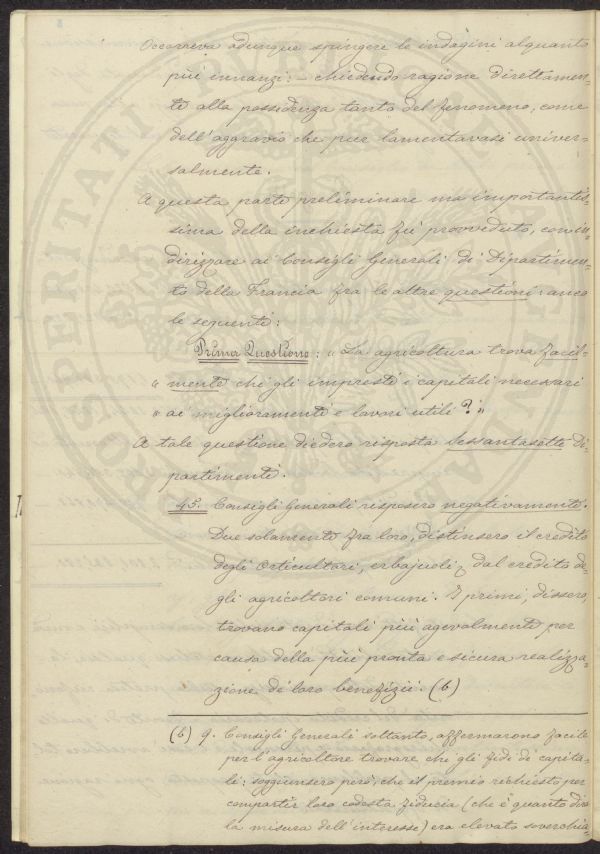 Occorreva adunque spingere le indagini alquanto
più innanzi: - chiedendo ragione direttamen-
te alla possidenza tanto del fenomeno, come
dell'aggravio che pur lamentavasi univer-
salmente.
A questa parte preliminare ma importantis-
sima della inchiesta fu provveduto, con in-
dirizzare ai Consigli Generali di Dipartimen-
to della Francia fra le altre questioni anco
le seguenti:
Prima Questione: "La agricoltura trova facil-
" mente chi gli impresti i capitali necessari
" ai miglioramenti e lavori utili?"
A tale questione diedero risposta Sessantasette Di-
partimenti.
45. Consigli Generali risposero negativamente.
Due solamente fra loro, distinsero il credito
degli Orticultori, erbajuoli, dal credito de-
gli agricoltori comuni. I primi, dissero,
trovano capitali più agevolmente per
causa della più pronta e sicura realizza-
zione de' loro benefizii. (b)
(b) 9. Consigli Generali soltanto, affermarono facile
per l'agricoltore trovare chi gli fidi de' capita-
li: soggiunsero però, che il premio richiesto per
compartir loro codesta fiducia (che è quanto dire
la misura dell'interesse) era elevato soverchia-
PROSPERITATI PVBLICAE